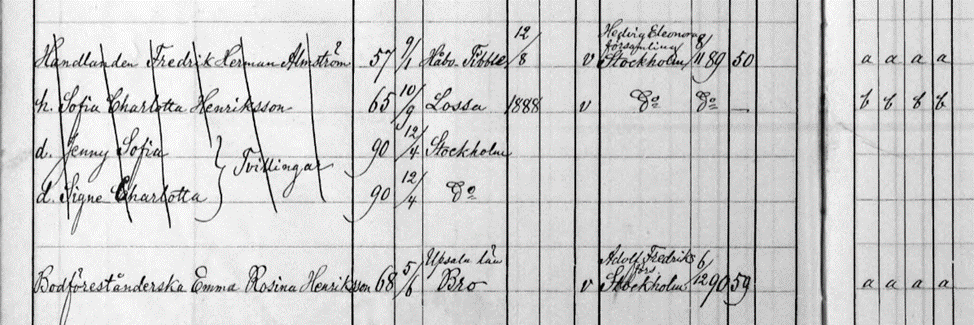 Hedvig Eleonora
församling
Handlanden Fredrik Herman Almström 57 9/1 Håbo-Tibble 12/8 v Stockholm 8/11 89 50 a a a a
h. Sofia Charlotta Henriksson 65 10/9 Lossa 1888 v Do Do — b b b b
d. Jenny Sofia 90 12/4 Stockholm
Tvillingar
d. Signe Charlotta 90 12/4 Do
Upsala län Adolf Fredriks
förs
Bodförestånderska Emma Rosina Henriksson 68 5/6 Bro v Stockholm 6/12 90 59 a a a a